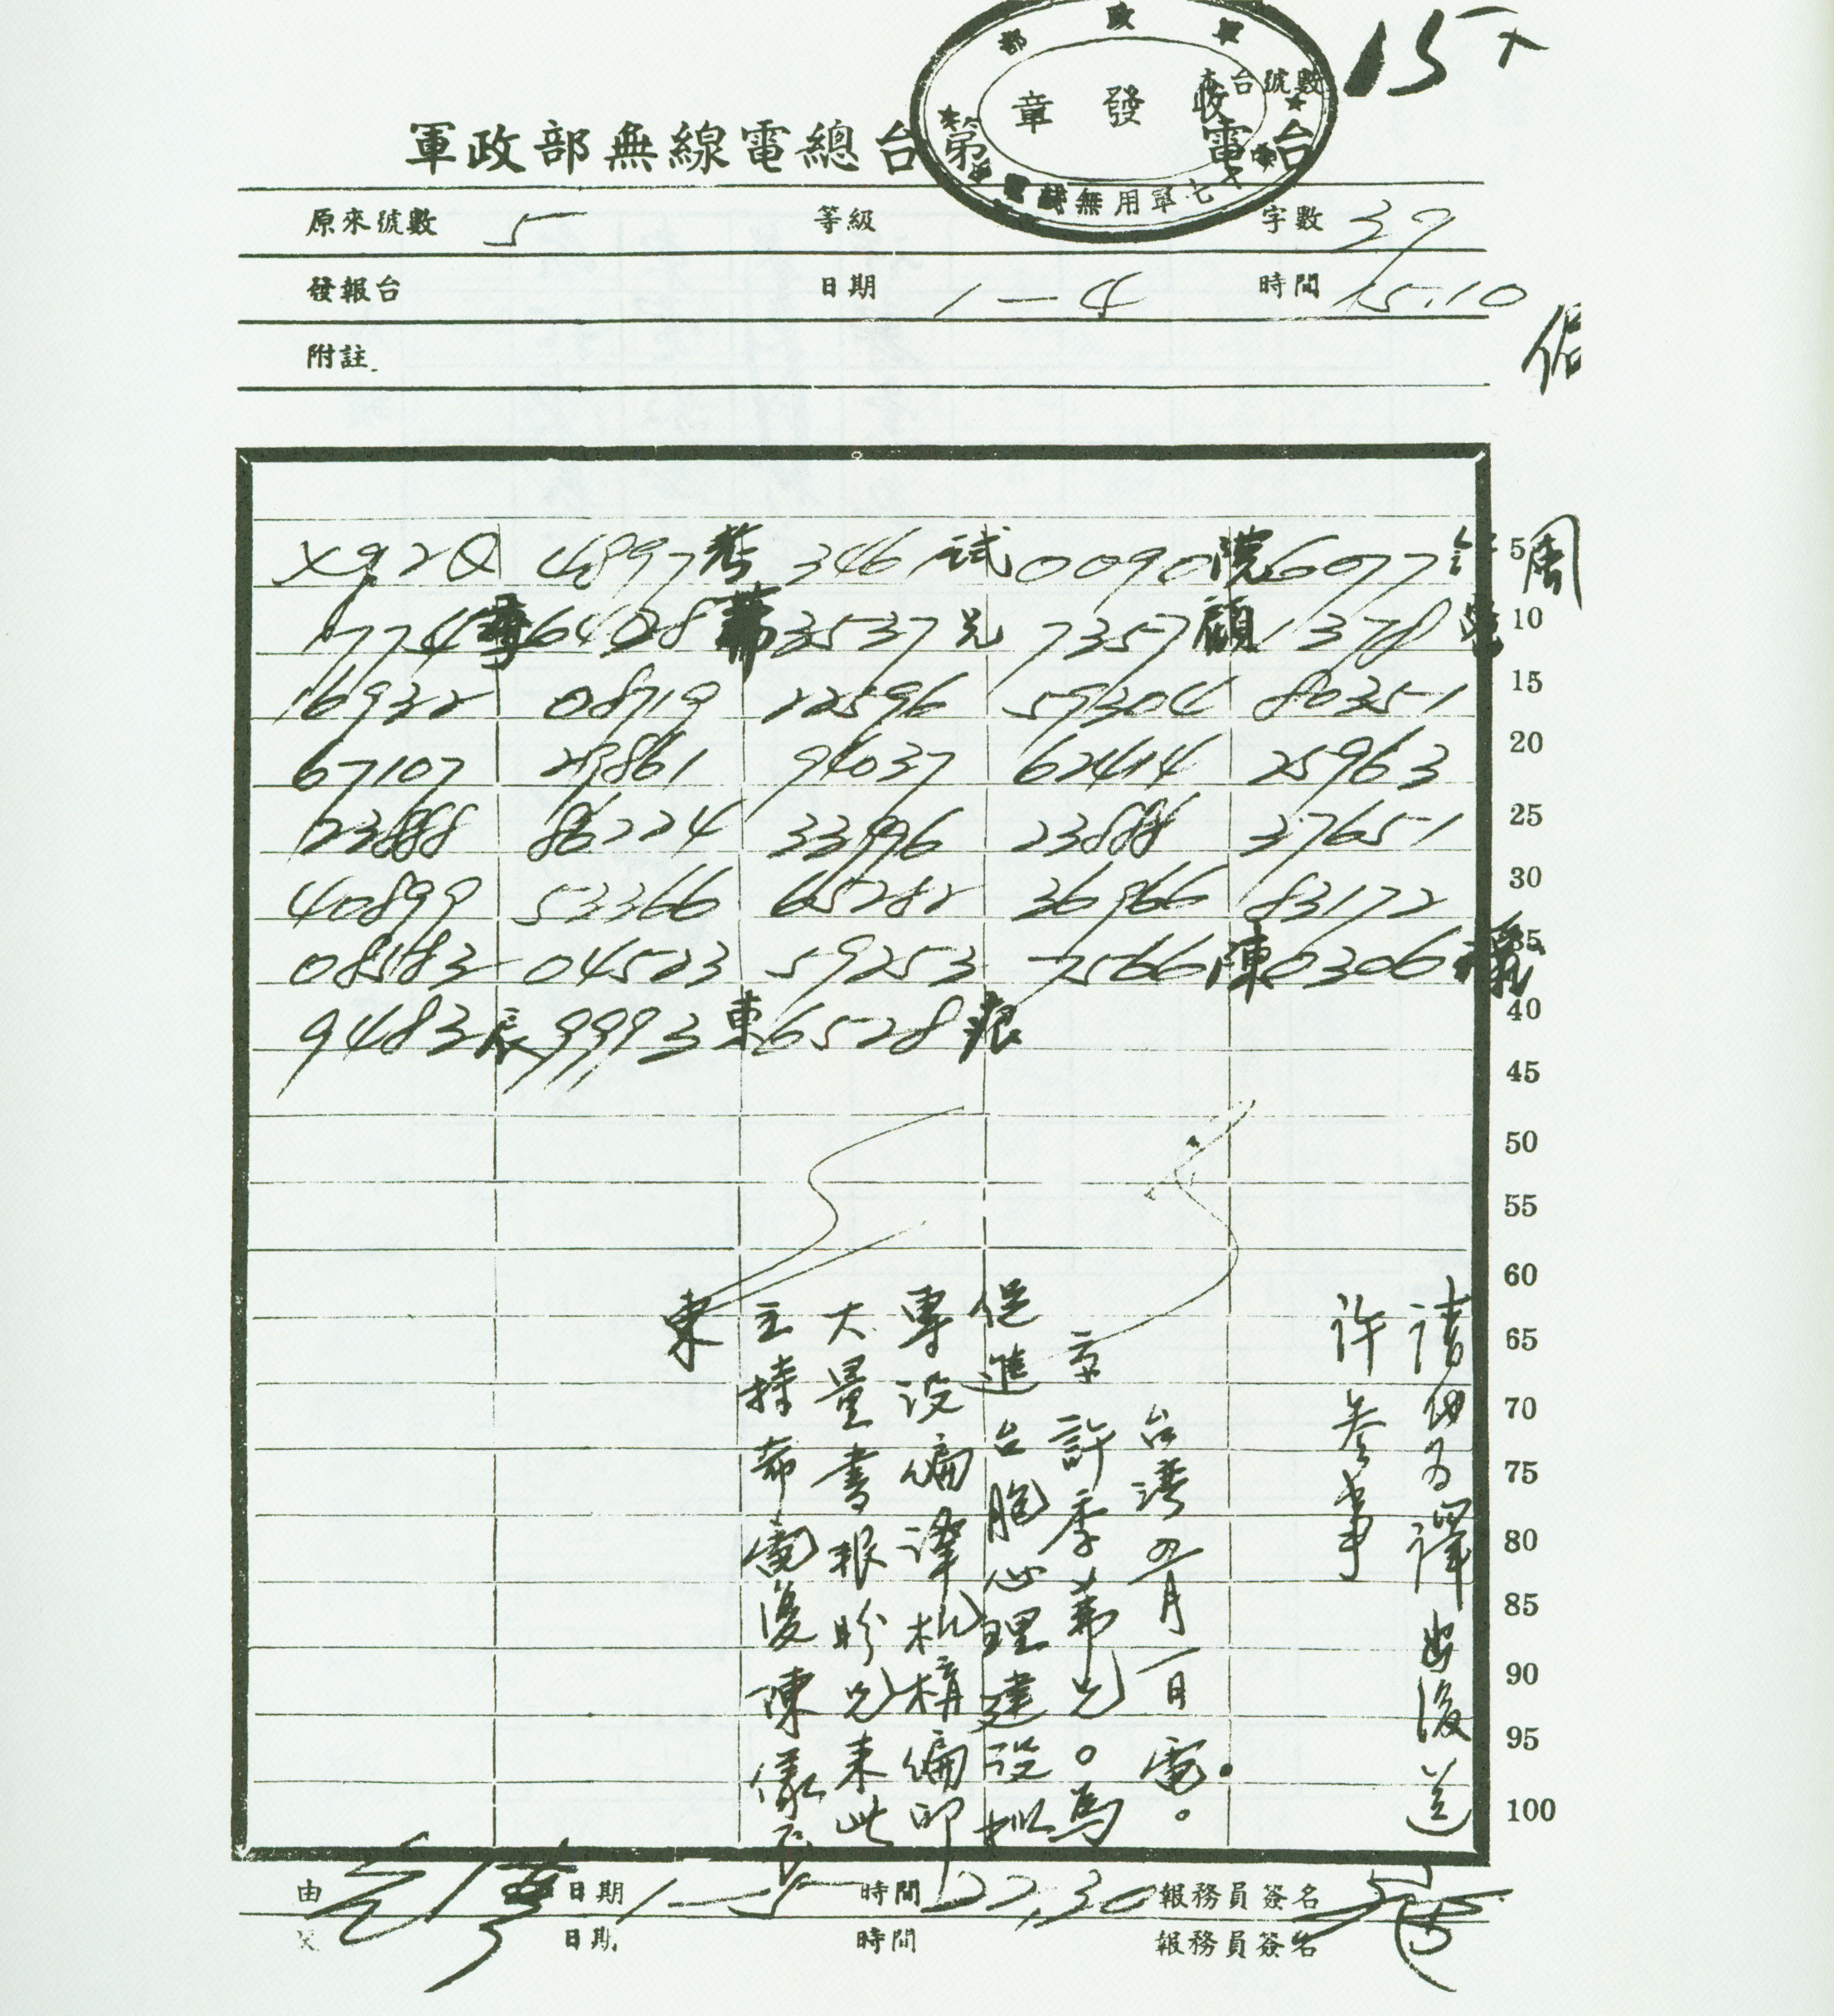 15
軍政部無線電總台第 電台
部政軍
收發章
本台號數
原來號數 5 等級 字數 39
發報台 日期 1-4 時間 15.10
附註
4897考 346 試 0090院 6077
1774季 6428茀 3537兄 7357顧 1378
16932 08719 22596 59304 80351
67107 29861 94037 62414 25963
23888 86224 33996 23888 37651
40899 53366 65282 36966 83172
08583 04523 59253 7566陳 0306儀
9483辰 9993東 6528痕
周
5
10
15
20
25
30
35
40
45
50
55
60
65
70
75
80
85
90
95
100
請 譯出後送
許参事
台灣 月一日電。
京 許季茀兄。為
促進台胞心理建設擬
專設編譯机構編印
大量書報盼兄来此
主持希電復陳儀
東
由 日期 1-5 時間 22,30 報務員簽名
日期 時間 報務員簽名